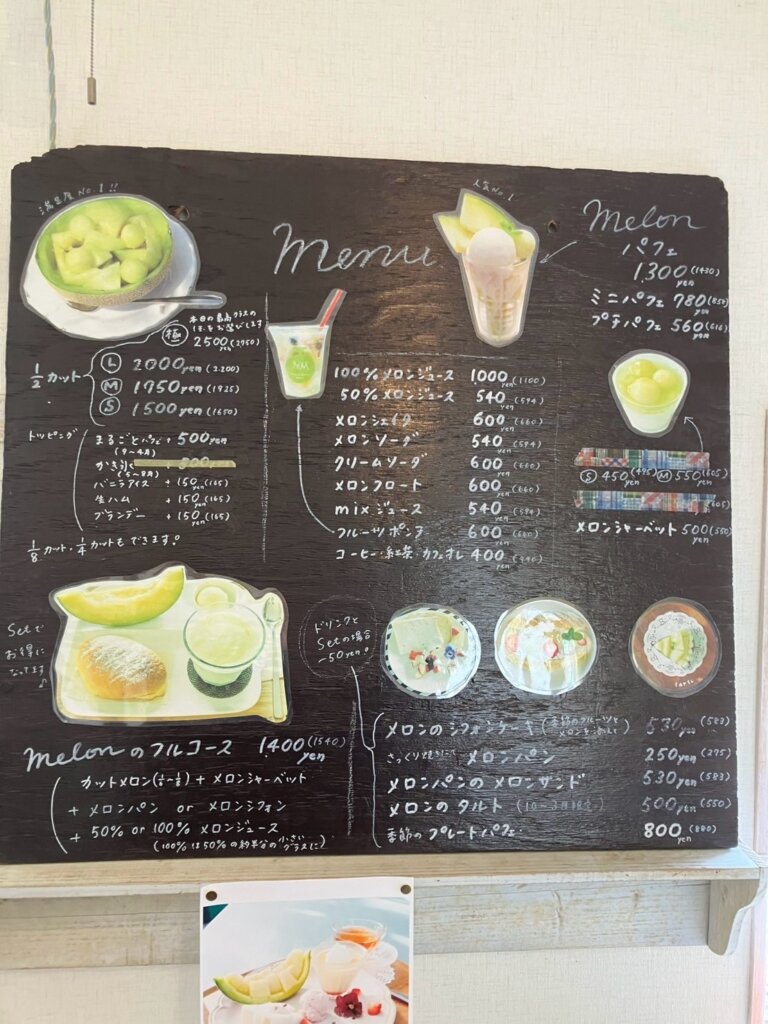 満足度No.1!!
Menu
人気No.1
Melon
パフェ
1300(1430)
yen
ミニパフェ 780(858)
yen
プチパフェ 560(616)
yen
本日の最高クラスの
極
2500(2750)
yen
1/2 カット
L 2000yen (2200)
M 1750yen (1925)
S 1500yen (1650)
トッピング
まるごとパフェ + 500yen
(9~4月)
かき氷
(5~8月)
バニラアイス +150(165)
yen
生ハム +150(165)
yen
ブランデー +150(165)
yen
1/8カット・1/4カットもできます!
NM
100%メロンジュース 1000(1100)
yen
50%メロンジュース 540(594)
yen
メロンシェイク 600(660)
yen
メロンソーダ 540(594)
yen
クリームソーダ 600(660)
yen
メロンフロート 600(660)
yen
mixジュース 540(594)
yen
フルーツポンチ 600(660)
yen
コーヒー・紅茶・カフェオレ 400(440)
yen
S 450(495) M 550(605)
yen yen
メロンシャーベット 500(550)
yen
Setで
お得に
なってます♪
melonのフルコース 1400(1540)
yen
カットメロン(1/6~1/8)+メロンシャーベット
+メロンパン or メロンシフォン
+50% or 100% メロンジュース
(100%は50%の約半分の小さいグラスに)
ドリンクと
Setの場合
-50yen!
メロンのシフォンケーキ(季節のフルーツと 530(583)
yen
さっくり焼きたて メロンパン 250(275)
yen
メロンパンのメロンサンド 530(583)
yen
メロンのタルト 500(550)
yen
季節のプレートパフェ 800(880)
yen